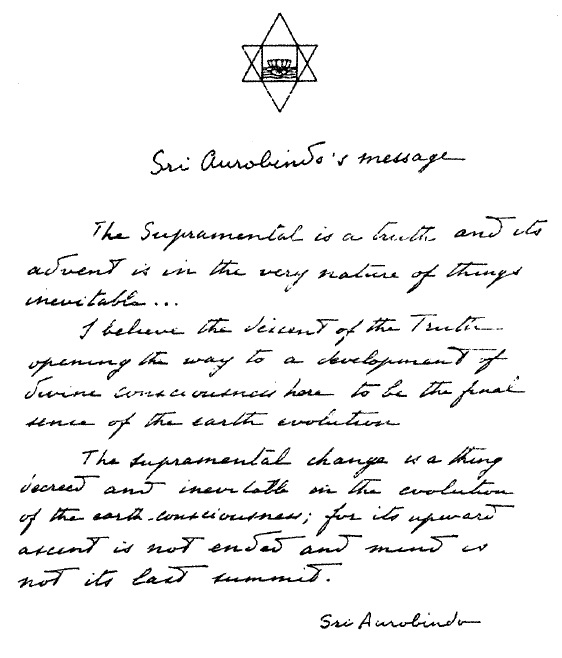 Sri Aurobindo's message
The Supramental is a truth and its
advent is in the very nature of things
inevitable...
I believe the descent of the Truth
opening the way to a development of
divine consciousness here to be the final
sense of the earth evolution
The supramental change is a thing
decreed and inevitable in the evolution
of the earth-consciousness; for its upward
ascent is not ended and mind is
not its last summit.
Sri Aurobindo